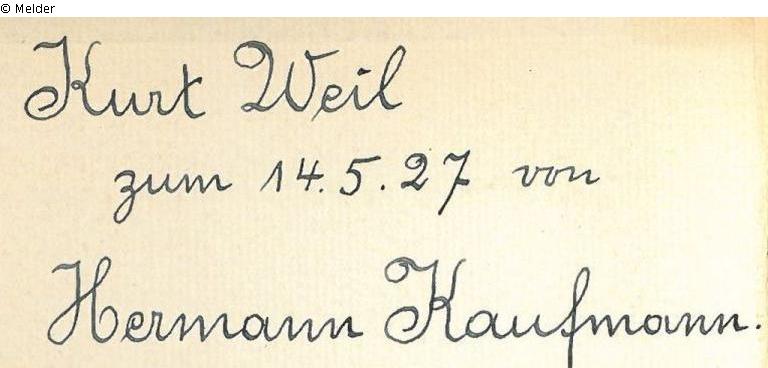 © Melder
Kurt Weil
zum 14.5.27 von
Hermann Kaufmann.